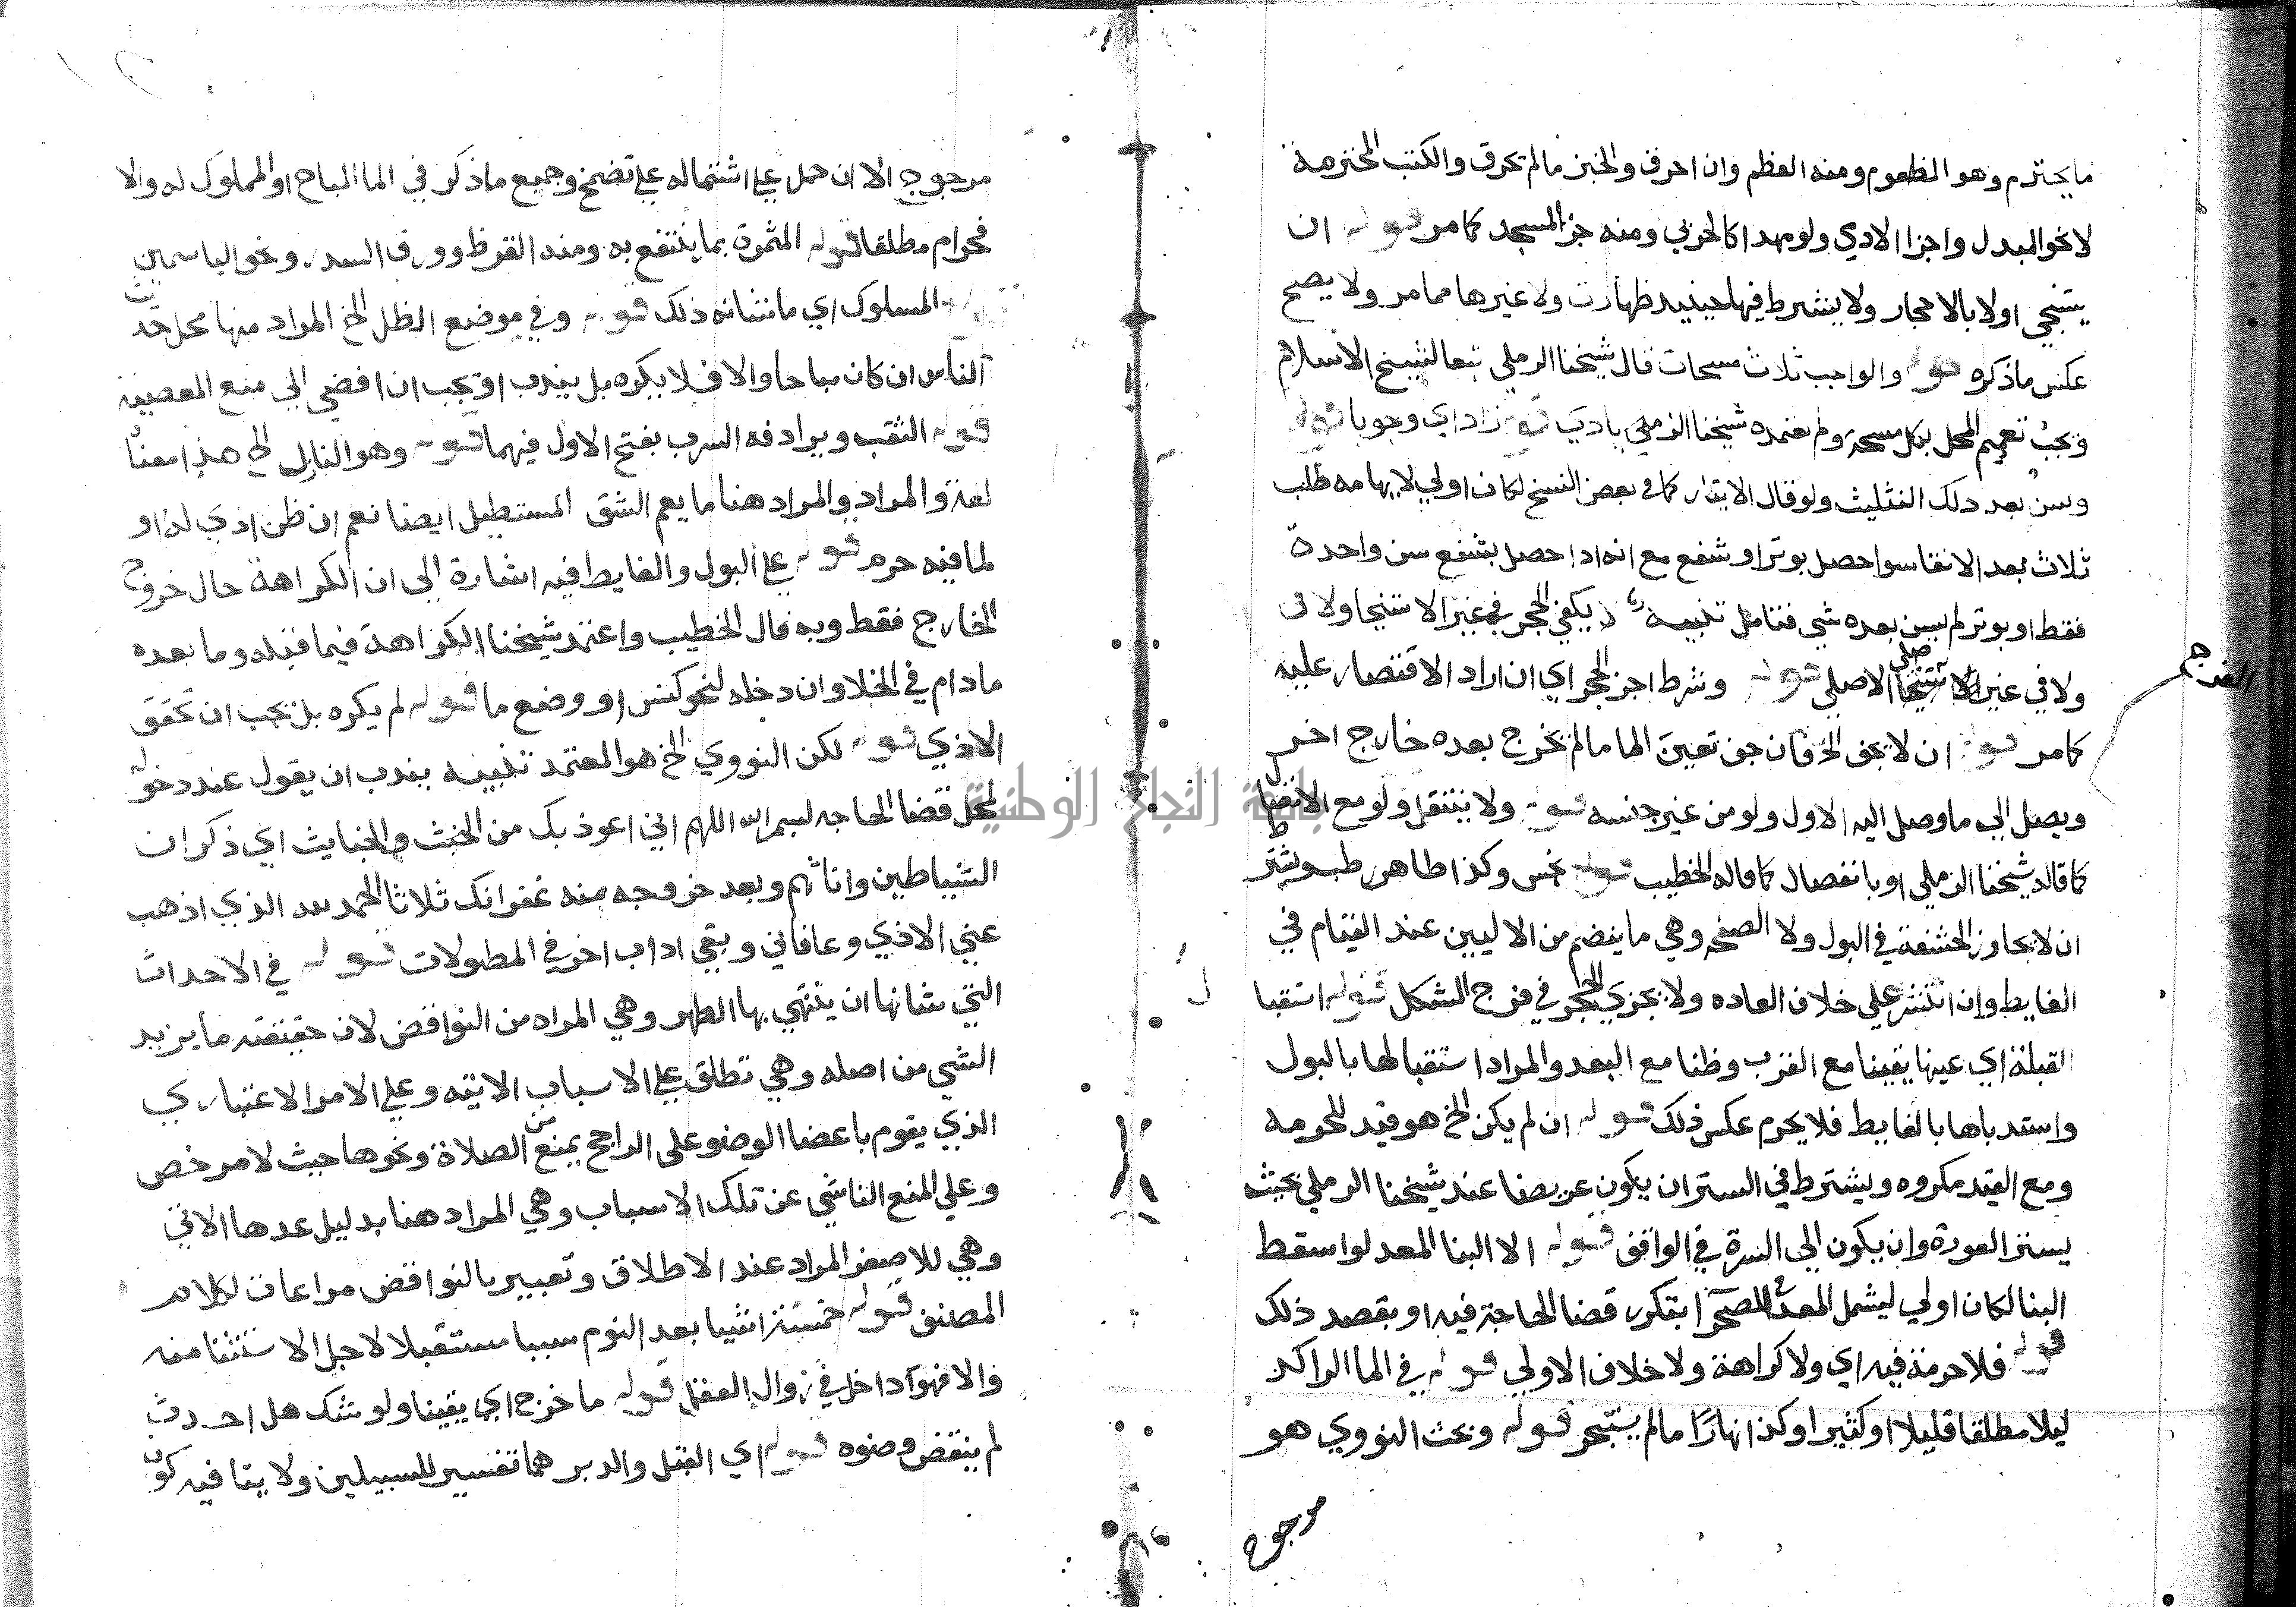 ما يحترم وهو المطعوم ومنه العظم وان احرق والخبز ما لم يحرق والكتب المحترمة
لا نحو المبدل واجزا الادمي ولو مهدرا كالحربي ومنه جز المسجد كما مر قوله ان
يستنجي اولا بالاحجار ولا يشترط فيها حينيذ طهارت ولا غيرها مما مر ولا يصح
عكس ما ذكره قوله والواجب ثلاث مسحات قال شيخنا الرملي تبعا لشيخ الاسلام
ويجب تعميم المحل بكل مسحة ولم يعتمده شيخنا الزيادي قوله زاد اي وجوبا قوله
وسن بعد ذلك التثليث ولو قال الايتار كما في بعض النسخ لكان اولي لايهامه طلب
ثلاث بعد الانقا سوا حصل بوتر او شفع مع انه اذا حصل بشفع سن واحدة
فقط او بوتر لم يسن بعده شي فتامل تنبيه لا يكفي الحجر في غير الاستنجا ولا في
ولا في غير الاصلي قوله وشرط اجز الحجر اي ان اراد الاقتصار عليه
الفرج
كما مر قوله ان لا يجف الخ فان جف تعين الما ما لم يخرج بعده خارج اخر
ويصل الي ما وصل اليه الاول ولو من غير جنسه قوله ولا ينتقل ولو مع الاتصال
كما قاله شيخنا الرملي او بانفصال كما قاله الخطيب قوله نجس وكذا طاهر رطب
ان لا يجاوز الحشفة في البول ولا الصفحة وهي ما ينضم من الاليين عند القيام في
الغايط وان انتشر علي خلاف العاده ولا يجزي الحجر في فرج المشكل قوله استقبا
القبلة اي عينها يقينا مع القرب وظنا مع البعد والمراد استقبالها بالبول
واستدبارها بالغايط فلا يحرم عكس ذلك قوله ان لم يكن الخ هو قيد للحرمه
ومع القيد مكروه ويشترط في الستر ان يكون عريضا عند شيخنا الرملي بحيث
يستر العورة وان يكون الي السرة في الواقف قوله الا البنا المعد لو اسقط
البنا لكان اولي ليشمل المعد في الصحرا بتكرر قضا الحاجة فيه او بقصد ذلك
قوله فلا حرمة فيه اي ولا كراهة ولا خلاف الاولي قوله في الما الراكد
ليلا مطلقا قليلا او كثيرا وكذا نهارا ما لم يستبحر قوله وبحث النووي هو
مرجوح
مرجوح الا ان حمل علي اشتماله علي تضمخ وجميع ما ذكر في الما المباح او المملوك له والا
فحرام مطلقا قوله المثمرة بما ينتفع به ومنه القرظ وورق السدر ونحو الياسمين
المسلوك اي ما شانه ذلك قوله وفي موضع الظل الخ المراد منها محل تحدث
الناس ان كان مباحا والا فلا يكره بل يندب او يجب ان افضي الي منع المعصية
قوله الثقب ويرادفه السرب بفتح الاول فيهما قوله وهو النازل الخ هذا معناه
لغة والمراد والمراد هنا ما يعم الشق المستطيل ايضا نعم ان ظن اذي له او
لما فيه حرم قوله علي البول والغايط فيه اشارة الي ان الكراهة حال خروج
الخارج فقط وبه قال الخطيب واعتمد شيخنا الكراهة فيما قبله وما بعده
ما دام في الخلا وان دخله لنحو كنس او وضع ما قوله لم يكره بل يجب ان تحقق
الاذي قوله لكن النووي الخ هو المعتمد تنبيه يندب ان يقول عند دخوله
لمحل قضا الحاجه بسم الله اللهم اني اعوذ بك من الخبث والخبايث اي ذكران
الشياطين واناثهم وبعد خروجه منه غفرانك ثلاثا الحمد لله الذي اذهب
عني الاذي وعافاني وبقي اداب اخر في المطولات قوله في الاحداث
التي شانها ان ينتهي بها الطهر وهي المراد من النواقض لان حقيقته ما يزيد
الشي من اصله وهي تطلق علي الاسباب الاتيه وعلي الامر الاعتباري
الذي يقوم باعضا الوضو علي الراجح يمنع من الصلاة ونحوها حيث لا مرخص
وعلي المنع الناشي عن تلك الاسباب وهي المراد هنا بدليل عدها الاتي
وهي للاصغر المراد عند الاطلاق وتعبير بالنواقض مراعات لكلام
المصنف قوله خمسة اشيا بعد النوم سببا مستقلا لاجل الاستثنا منه
والا فهو داخل في زوال العقل قوله ما خرج اي يقينا ولو شك هل احدث
لم ينتقض وضوه قوله اي القبل والدبر هما تفسير للسبيلين ولا ينافيه كون
جامعة النجاح الوطنية